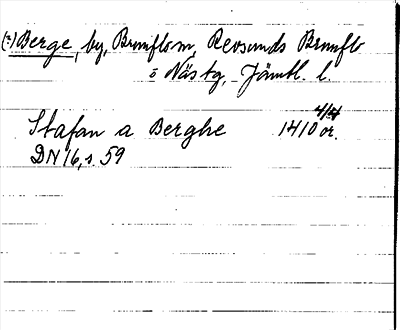 (?) Berge, by, Brunflo sn, Revsunds Brunflo
o Näs tg, Jämtl. l.
Stafan a Berghe 1410 or. 4/4
DN 16, s. 59